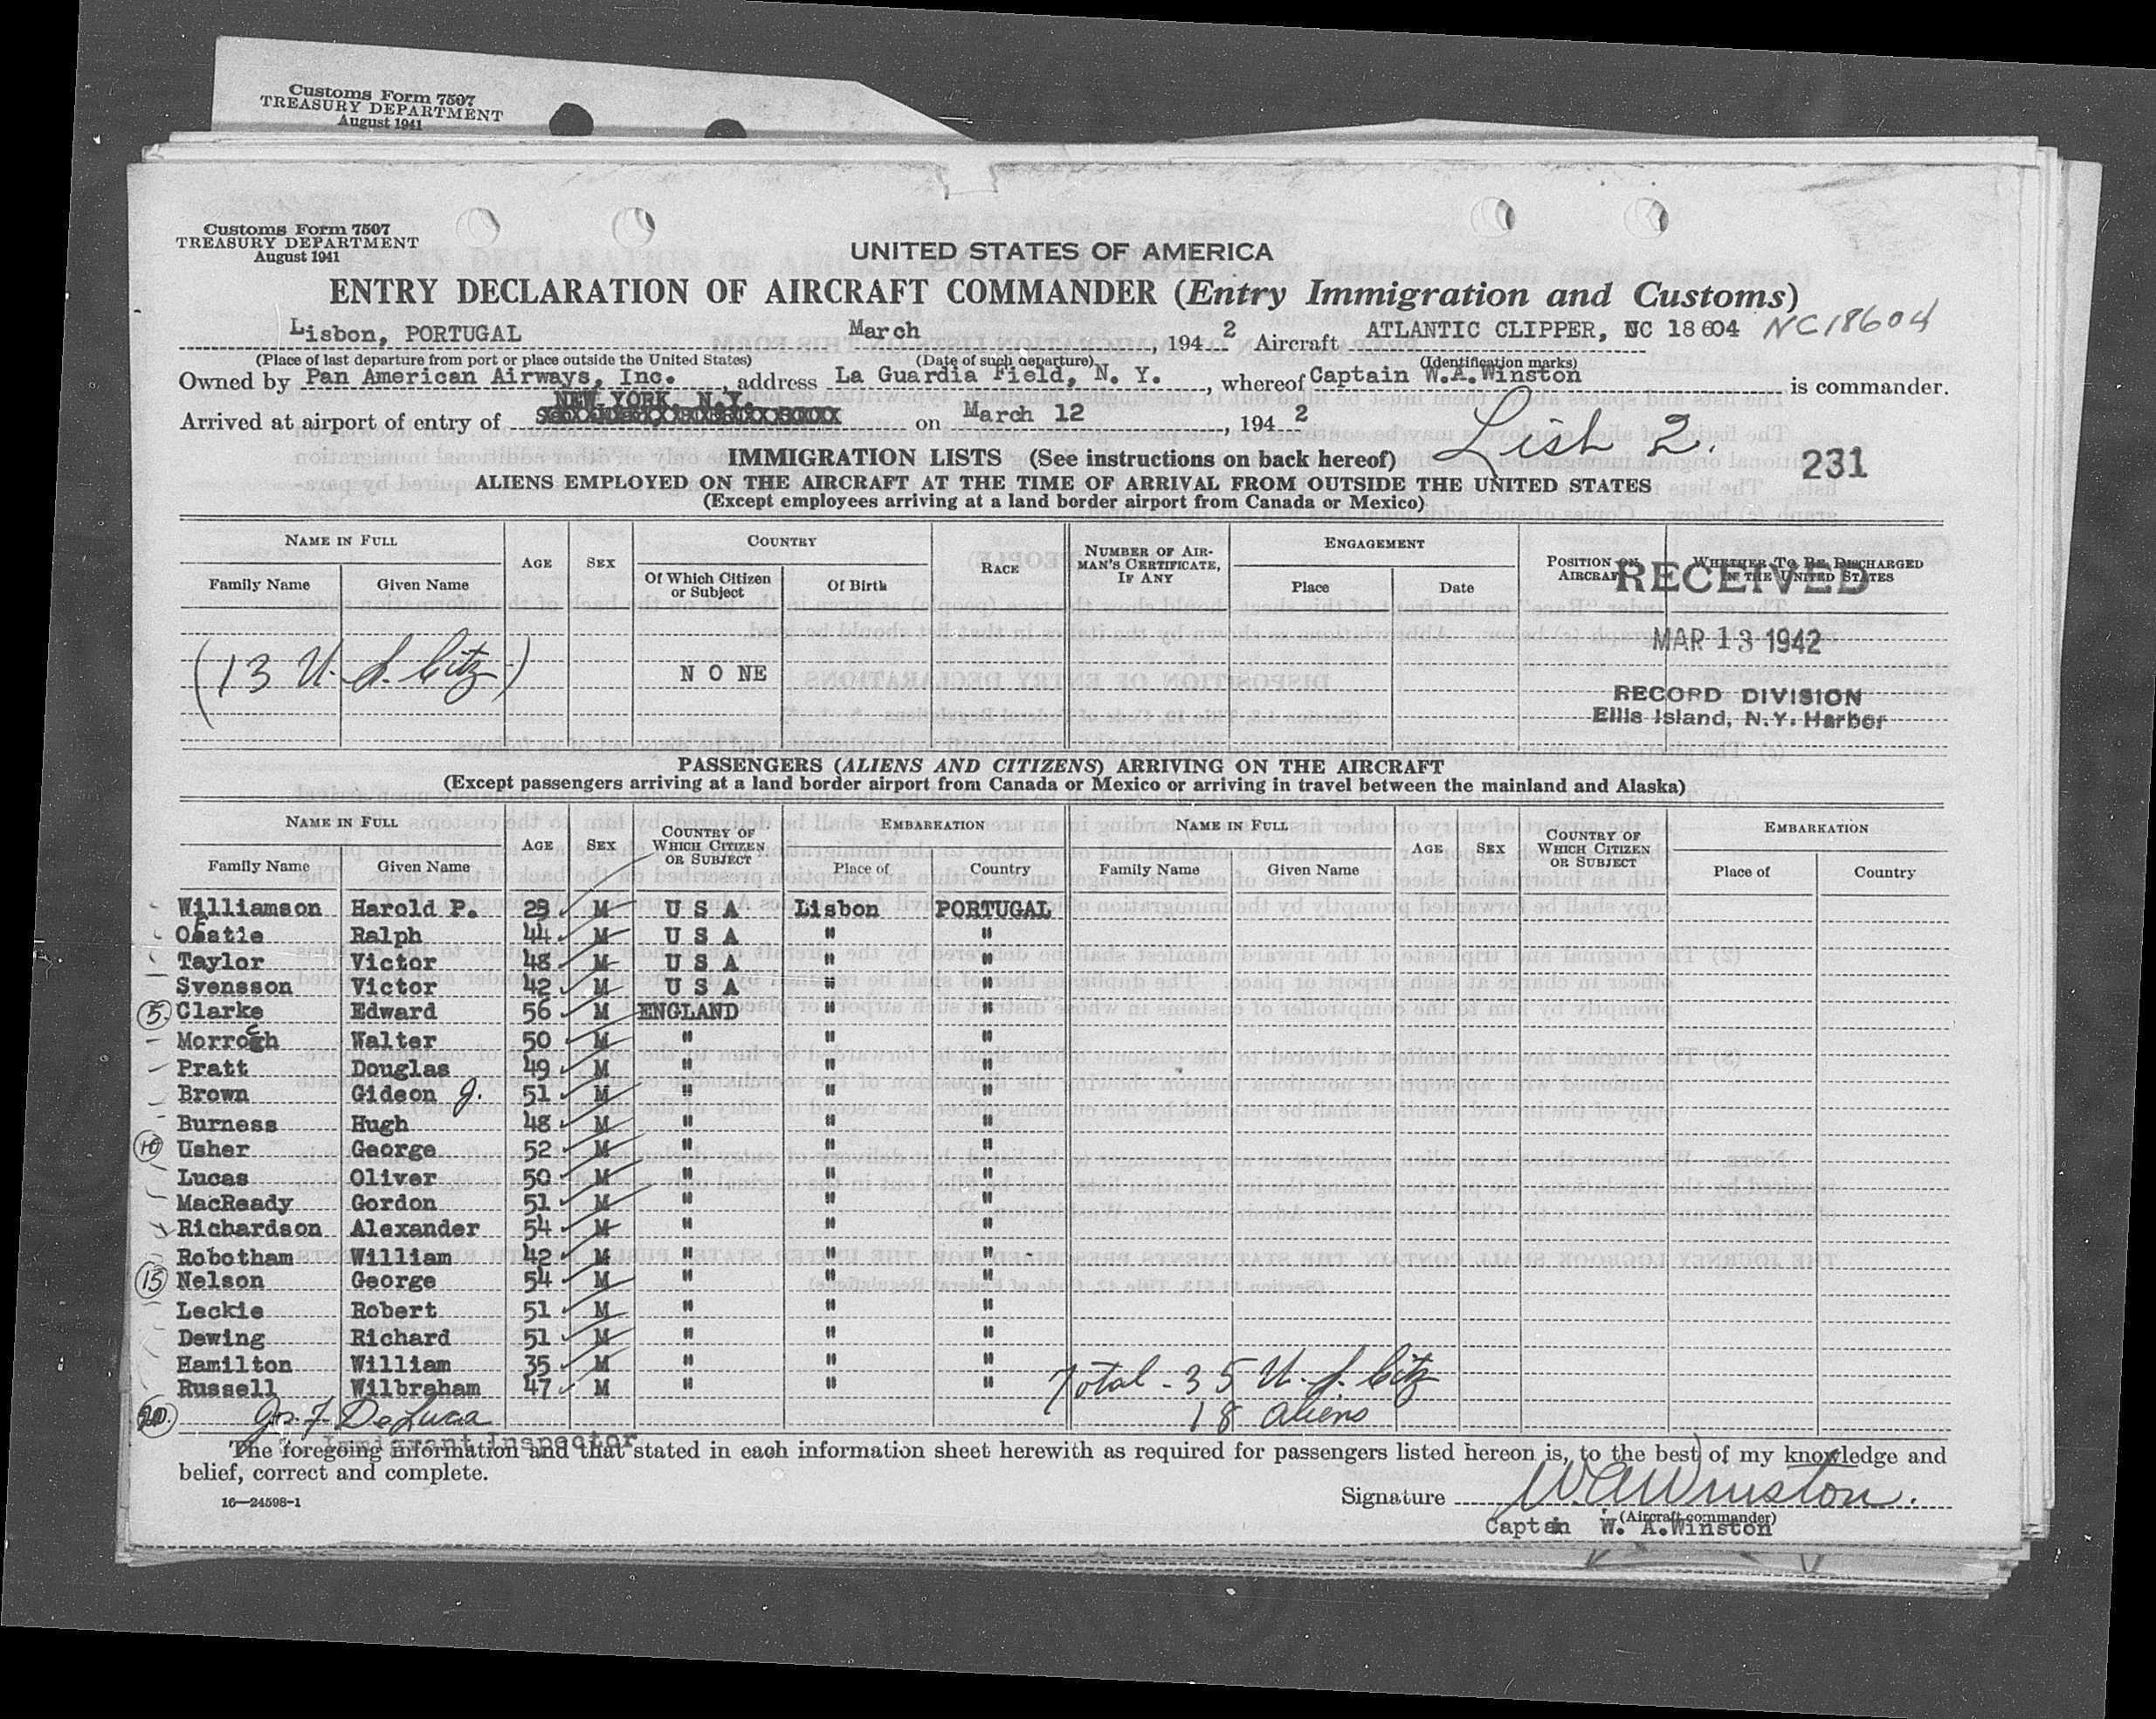 Customs Form 7507
TREASURY DEPARTMENT
August 1941
Customs Form 7507
TREASURY DEPARTMENT
August 1941
UNITED STATES OF AMERICA
ENTRY DECLARATION OF AIRCRAFT COMMANDER (Entry Immigration and Customs)
Lisbon, PORTUGAL March , 194 2 Aircraft ATLANTIC CLIPPER, NC 18604 NC18604
(Place of last departure from port or place outside the United States) (Date of such departure) (Identification marks)
Owned by Pan American Airways, Inc. , address La Guardia Field, N. Y. , whereof Captain W.A.Winston is commander.
NEW YORK, N.Y.
Arrived at airport of entry of on March 12 , 194 2
List 2.
IMMIGRATION LISTS (See instructions on back hereof)
231
ALIENS EMPLOYED ON THE AIRCRAFT AT THE TIME OF ARRIVAL FROM OUTSIDE THE UNITED STATES
(Except employees arriving at a land border airport from Canada or Mexico)
NAME IN FULL AGE SEX COUNTRY RACE NUMBER OF AIRMAN'S CERTIFICATE, IF ANY ENGAGEMENT POSITION ON AIRCRAFT WHETHER TO BE DISCHARGED IN THE UNITED STATES
Family Name Given Name Of Which Citizen or Subject Of Birth Place Date
RECEIVED
MAR 13 1942
(13 U. S. Citz) N O NE
RECORD DIVISION
Ellis Island, N.Y. Harbor
PASSENGERS (ALIENS AND CITIZENS) ARRIVING ON THE AIRCRAFT
(Except passengers arriving at a land border airport from Canada or Mexico or arriving in travel between the mainland and Alaska)
NAME IN FULL AGE SEX COUNTRY OF WHICH CITIZEN OR SUBJECT EMBARKATION NAME IN FULL AGE SEX COUNTRY OF WHICH CITIZEN OR SUBJECT EMBARKATION
Family Name Given Name Place of Country Family Name Given Name Place of Country
Williamson Harold P. 29 M U S A Lisbon PORTUGAL
Ralph 44 M U S A " "
Taylor Victor 48 M U S A " "
Svensson Victor 42 M U S A " "
5. Clarke Edward 56 M ENGLAND " "
Morrogh Walter 50 M " " "
Pratt Douglas 49 M " " "
Brown Gideon J. 51 M " " "
Burness Hugh 48 M " " "
10 Usher George 52 M " " "
Lucas Oliver 50 M " " "
MacReady Gordon 51 M " " "
Richardson Alexander 54 M " " "
Robotham William 42 M " " "
15 Nelson George 54 M " " "
Leckie Robert 51 M " " "
Dewing Richard 51 M " " "
Hamilton William 35 M " " "
Russell Wilbraham 47 M " " "
Total - 35 U. S. Citz
20. Jos. F. DeLuca
18 aliens
Immigrant Inspector
The foregoing information and that stated in each information sheet herewith as required for passengers listed hereon is, to the best of my knowledge and
belief, correct and complete.
16—24598-1
Signature W A Winston.
(Aircraft commander)
Captain W. A.Winston